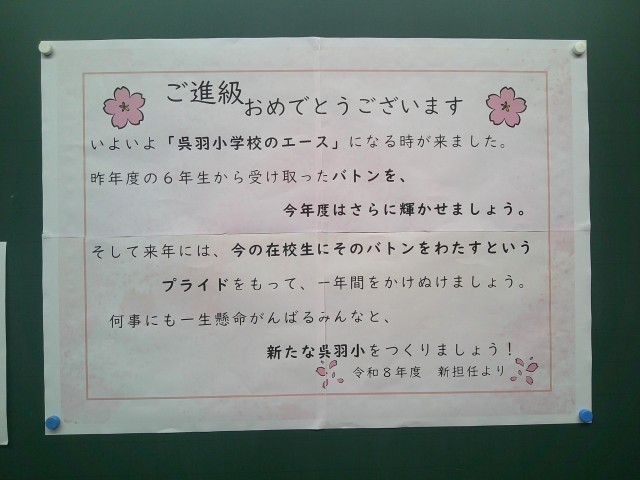 ご進級おめでとうございます
いよいよ「呉羽小学校のエース」になる時が来ました。
昨年度の６年生から受け取ったバトンを、
今年度はさらに輝かせましょう。
そして来年には、今の在校生にそのバトンをわたすという
プライドをもって、一年間をかけぬけましょう。
何事にも一生懸命がんばるみんなと、
新たな呉羽小をつくりましょう！
令和８年度　新担任より